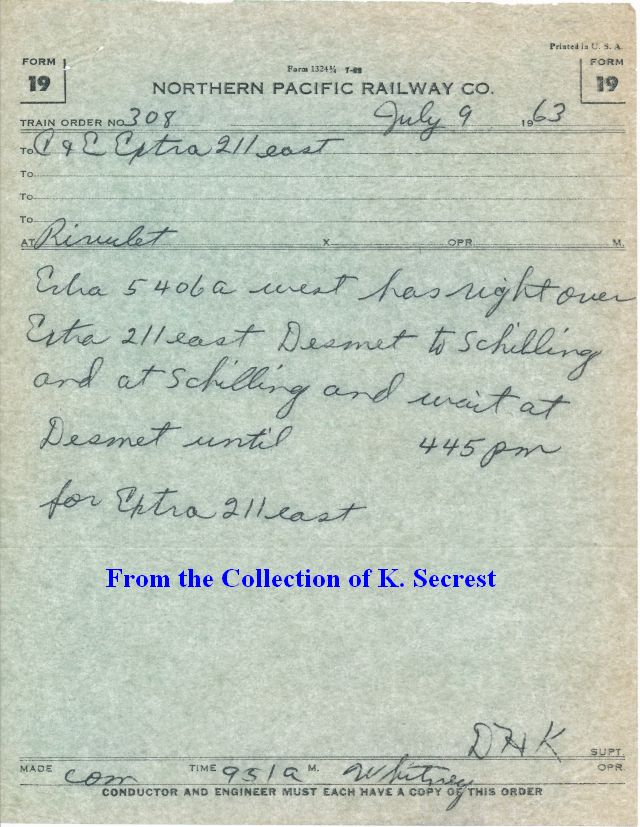 Printed in U. S. A.
FORM 19
Form 1324¾ 7-59
FORM 19
NORTHERN PACIFIC RAILWAY CO.
TRAIN ORDER NO. 308 July 9 1963
To C & E Extra 211 east
To
To
To
AT Rivulet X OPR. M.
Extra 5406a west has right over
Extra 211 east Desmet to Schilling
and at Schilling and wait at
Desmet until 445 pm
for Extra 211 east
From the Collection of K. Secrest
DHK SUPT.
MADE com TIME 951a M. Whitney OPR.
CONDUCTOR AND ENGINEER MUST EACH HAVE A COPY OF THIS ORDER